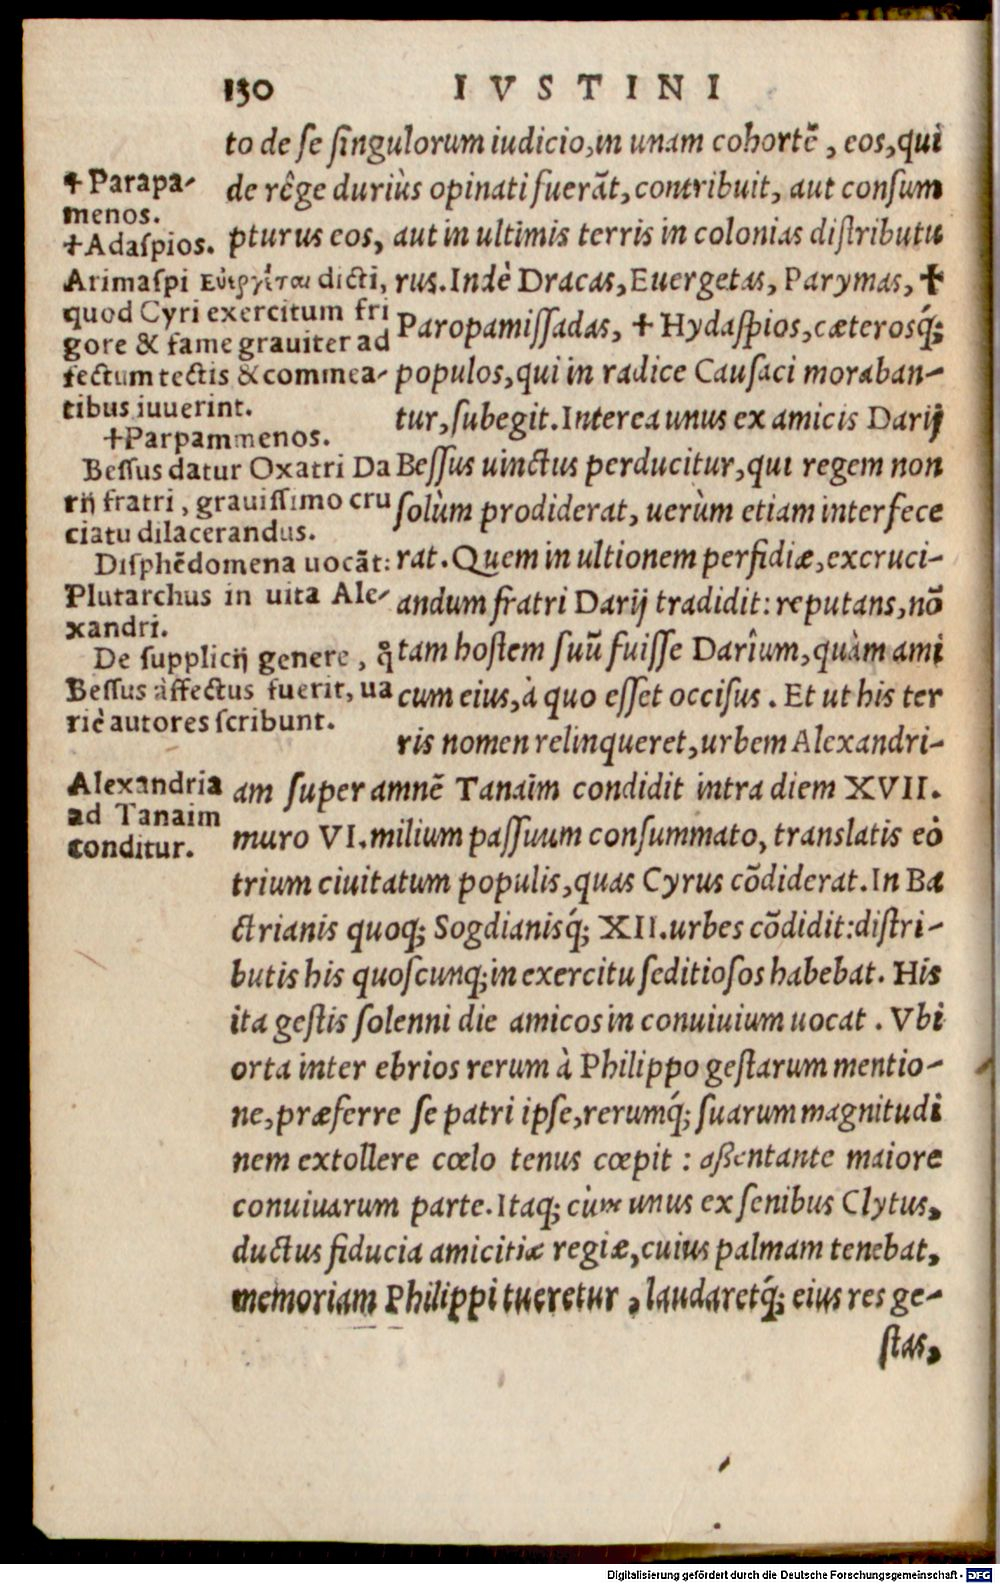 130 IVSTINI
to de se singulorum iudicio,in unam cohortē, eos,qui
de rêge duriùs opinati fuerāt,contribuit, aut consum
pturus eos, aut in ultimis terris in colonias distributu
rus. Indè Dracas, Euergetas, Parymas, ✝
Paropamissadas, ✝ Hydaspios, cæterosq́;
populos,qui in radice Causaci moraban-
tur, subegit. Interea unus ex amicis Darij
Bessus uinctus perducitur, qui regem non
solùm prodiderat, uerùm etiam interfece
rat. Quem in ultionem perfidiæ, excruci-
andum fratri Darij tradidit: reputans, nō
tam hostem suū fuisse Darîum, quàm ami
cum eius, à quo esset occisus. Et ut his ter
ris nomen relinqueret, urbem Alexandri-
am super amnē Tanaim condidit intra diem XVII.
muro VI. milium passuum consummato, translatis eò
trium ciuitatum populis, quas Cyrus cōdiderat. In Ba
ctrianis quoq; Sogdianisq́; XII. urbes cōdidit: distri-
butis his quoscunq; in exercitu seditiosos habebat. His
ita gestis solenni die amicos in conuiuium uocat. Vbi
orta inter ebrios rerum à Philippo gestarum mentio-
ne, præferre se patri ipse, rerumq́; suarum magnitudi
nem extollere cœlo tenus cœpit : aßentante maiore
conuiuarum parte. Itaq; cùm unus ex senibus Clytus,
ductus fiducia amicitiæ regiæ, cuius palmam tenebat,
memoriam Philippi tueretur, laudaretq́; eius res ge-
stas,
✝Parapa-
menos.
✝Adaspios.
Arimaspi Εὐεργέται dicti,
quod Cyri exercitum fri
gore & fame grauiter ad
fectum tectis & commea-
tibus iuuerint.
✝Parpammenos.
Bessus datur Oxatri Da
rij fratri, grauissimo cru
ciatu dilacerandus.
Disphēdomena uocāt:
Plutarchus in uita Ale-
xandri.
De supplicij genere, q̃
Bessus affectus fuerit, ua
riè autores scribunt.
Alexandria
ad Tanaim
conditur.
Digitalisierung gefördert durch die Deutsche Forschungsgemeinschaft - DFG